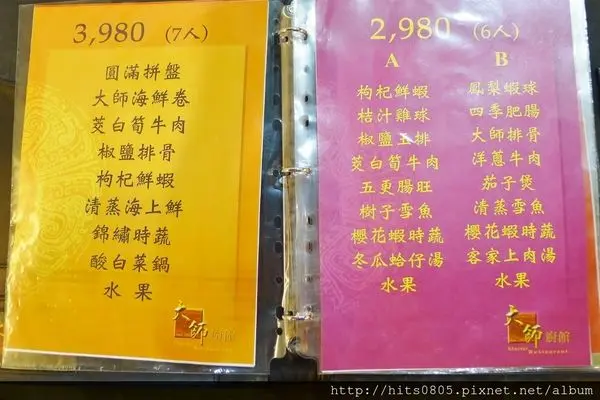 3,980 (7人)
圓滿拼盤
大師海鮮卷
茭白筍牛肉
椒鹽排骨
枸杞鮮蝦
清蒸海上鮮
錦繡時蔬
酸白菜鍋
水果
大師廚館
2,980 (6人)
A
枸杞鮮蝦
桔汁雞球
椒鹽五排
茭白筍牛肉
五更腸旺
樹子雪魚
櫻花蝦時蔬
冬瓜蛤仔湯
水果
B
鳳梨蝦球
四季肥腸
大師排骨
洋蔥牛肉
茄子煲
清蒸雪魚
櫻花蝦時蔬
客家上肉湯
水果
大師廚館
Master Restaurant
http://hits0805.pixnet.net/album